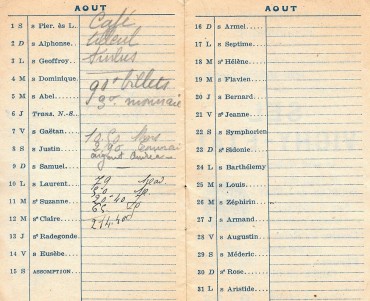 AOUT
1 S s Pier. ès L. Café
2 D s Alphonse. tilleul
3 L s Geoffroy.
4 M s Dominique
5 M s Abel. billets
monnaie
6 J Trans. N.-S.
7 V s Gaëtan.
8 S s Justin
9 D s Samuel. argent
10 L s Laurent. 79
11 M sᵉ Suzanne 20-40
12 M sᵉ Claire 65
13 J sᵉ Radegonde
14 V s Eusèbe.
15 S ASSOMPTION.
AOUT
16 D s Armel.
17 L s Septime.
18 M sᵉ Hélène.
19 M s Flavien
20 J s Bernard
21 V sᵉ Jeanne
22 S s Symphorien
23 D sᵉ Sidonie
24 L s Barthélemy
25 M s Louis
26 M s Zéphirin
27 J s Armand
28 V s Augustin
29 S s Médéric
30 D sᵉ Rose
31 L s Aristide